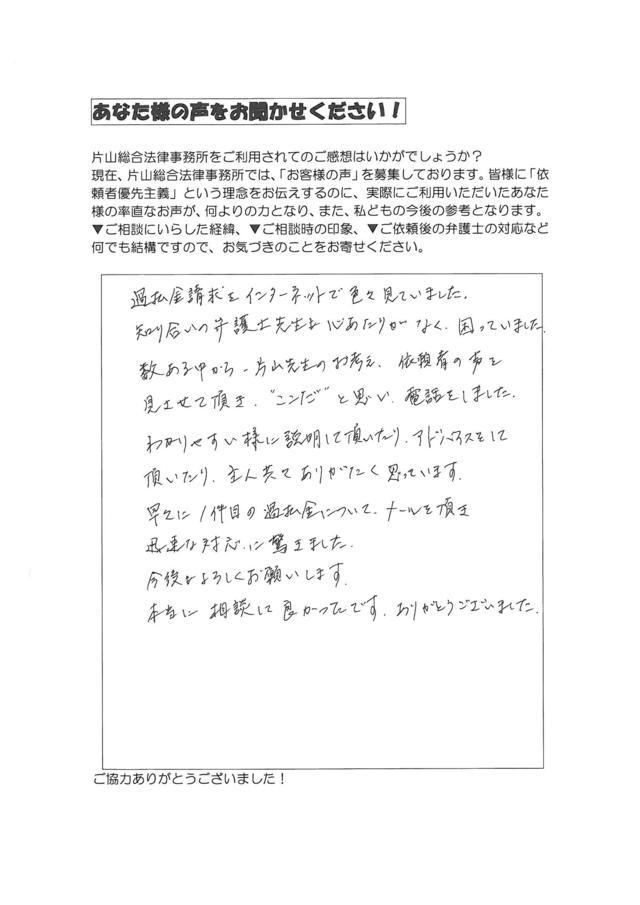 あなた様の声をお聞かせください！
片山総合法律事務所をご利用されてのご感想はいかがでしょうか？
現在、片山総合法律事務所では、「お客様の声」を募集しております。皆様に「依
頼者優先主義」という理念をお伝えするのに、実際にご利用いただいたあなた
様の率直なお声が、何よりの力となり、また、私どもの今後の参考となります。
▼ご相談にいらした経緯、▼ご相談時の印象、▼ご依頼後の弁護士の対応など
何でも結構ですので、お気づきのことをお寄せください。
過払金請求をインターネットで色々見ていました。
知り合いの弁護士先生も心あたりがなく、困っていました。
数ある中から、片山先生のお考え、依頼者の声を
見させて頂き、"ここだ"と思い、電話をしました。
わかりやすい様に説明して頂いたり、アドバイスをして
頂いたり、主人共々ありがたく思っています。
早々に1件目の過払金について、メールを頂き
迅速な対応に驚きました。
今後もよろしくお願いします。
本当に相談して良かったです。ありがとうございました。
ご協力ありがとうございました！